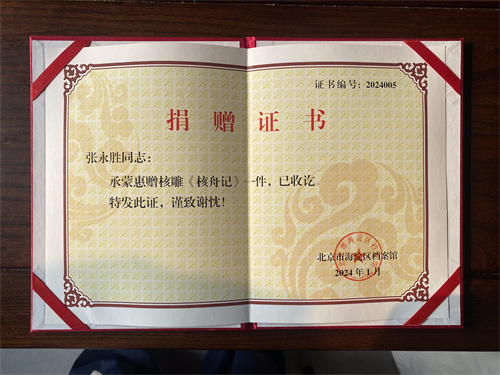 证书编号：2024005
捐赠证书
张永胜同志：
承蒙惠赠核雕《核舟记》一件，已收讫。
特发此证，谨致谢忱！
北京市海淀区档案馆
2024年1月